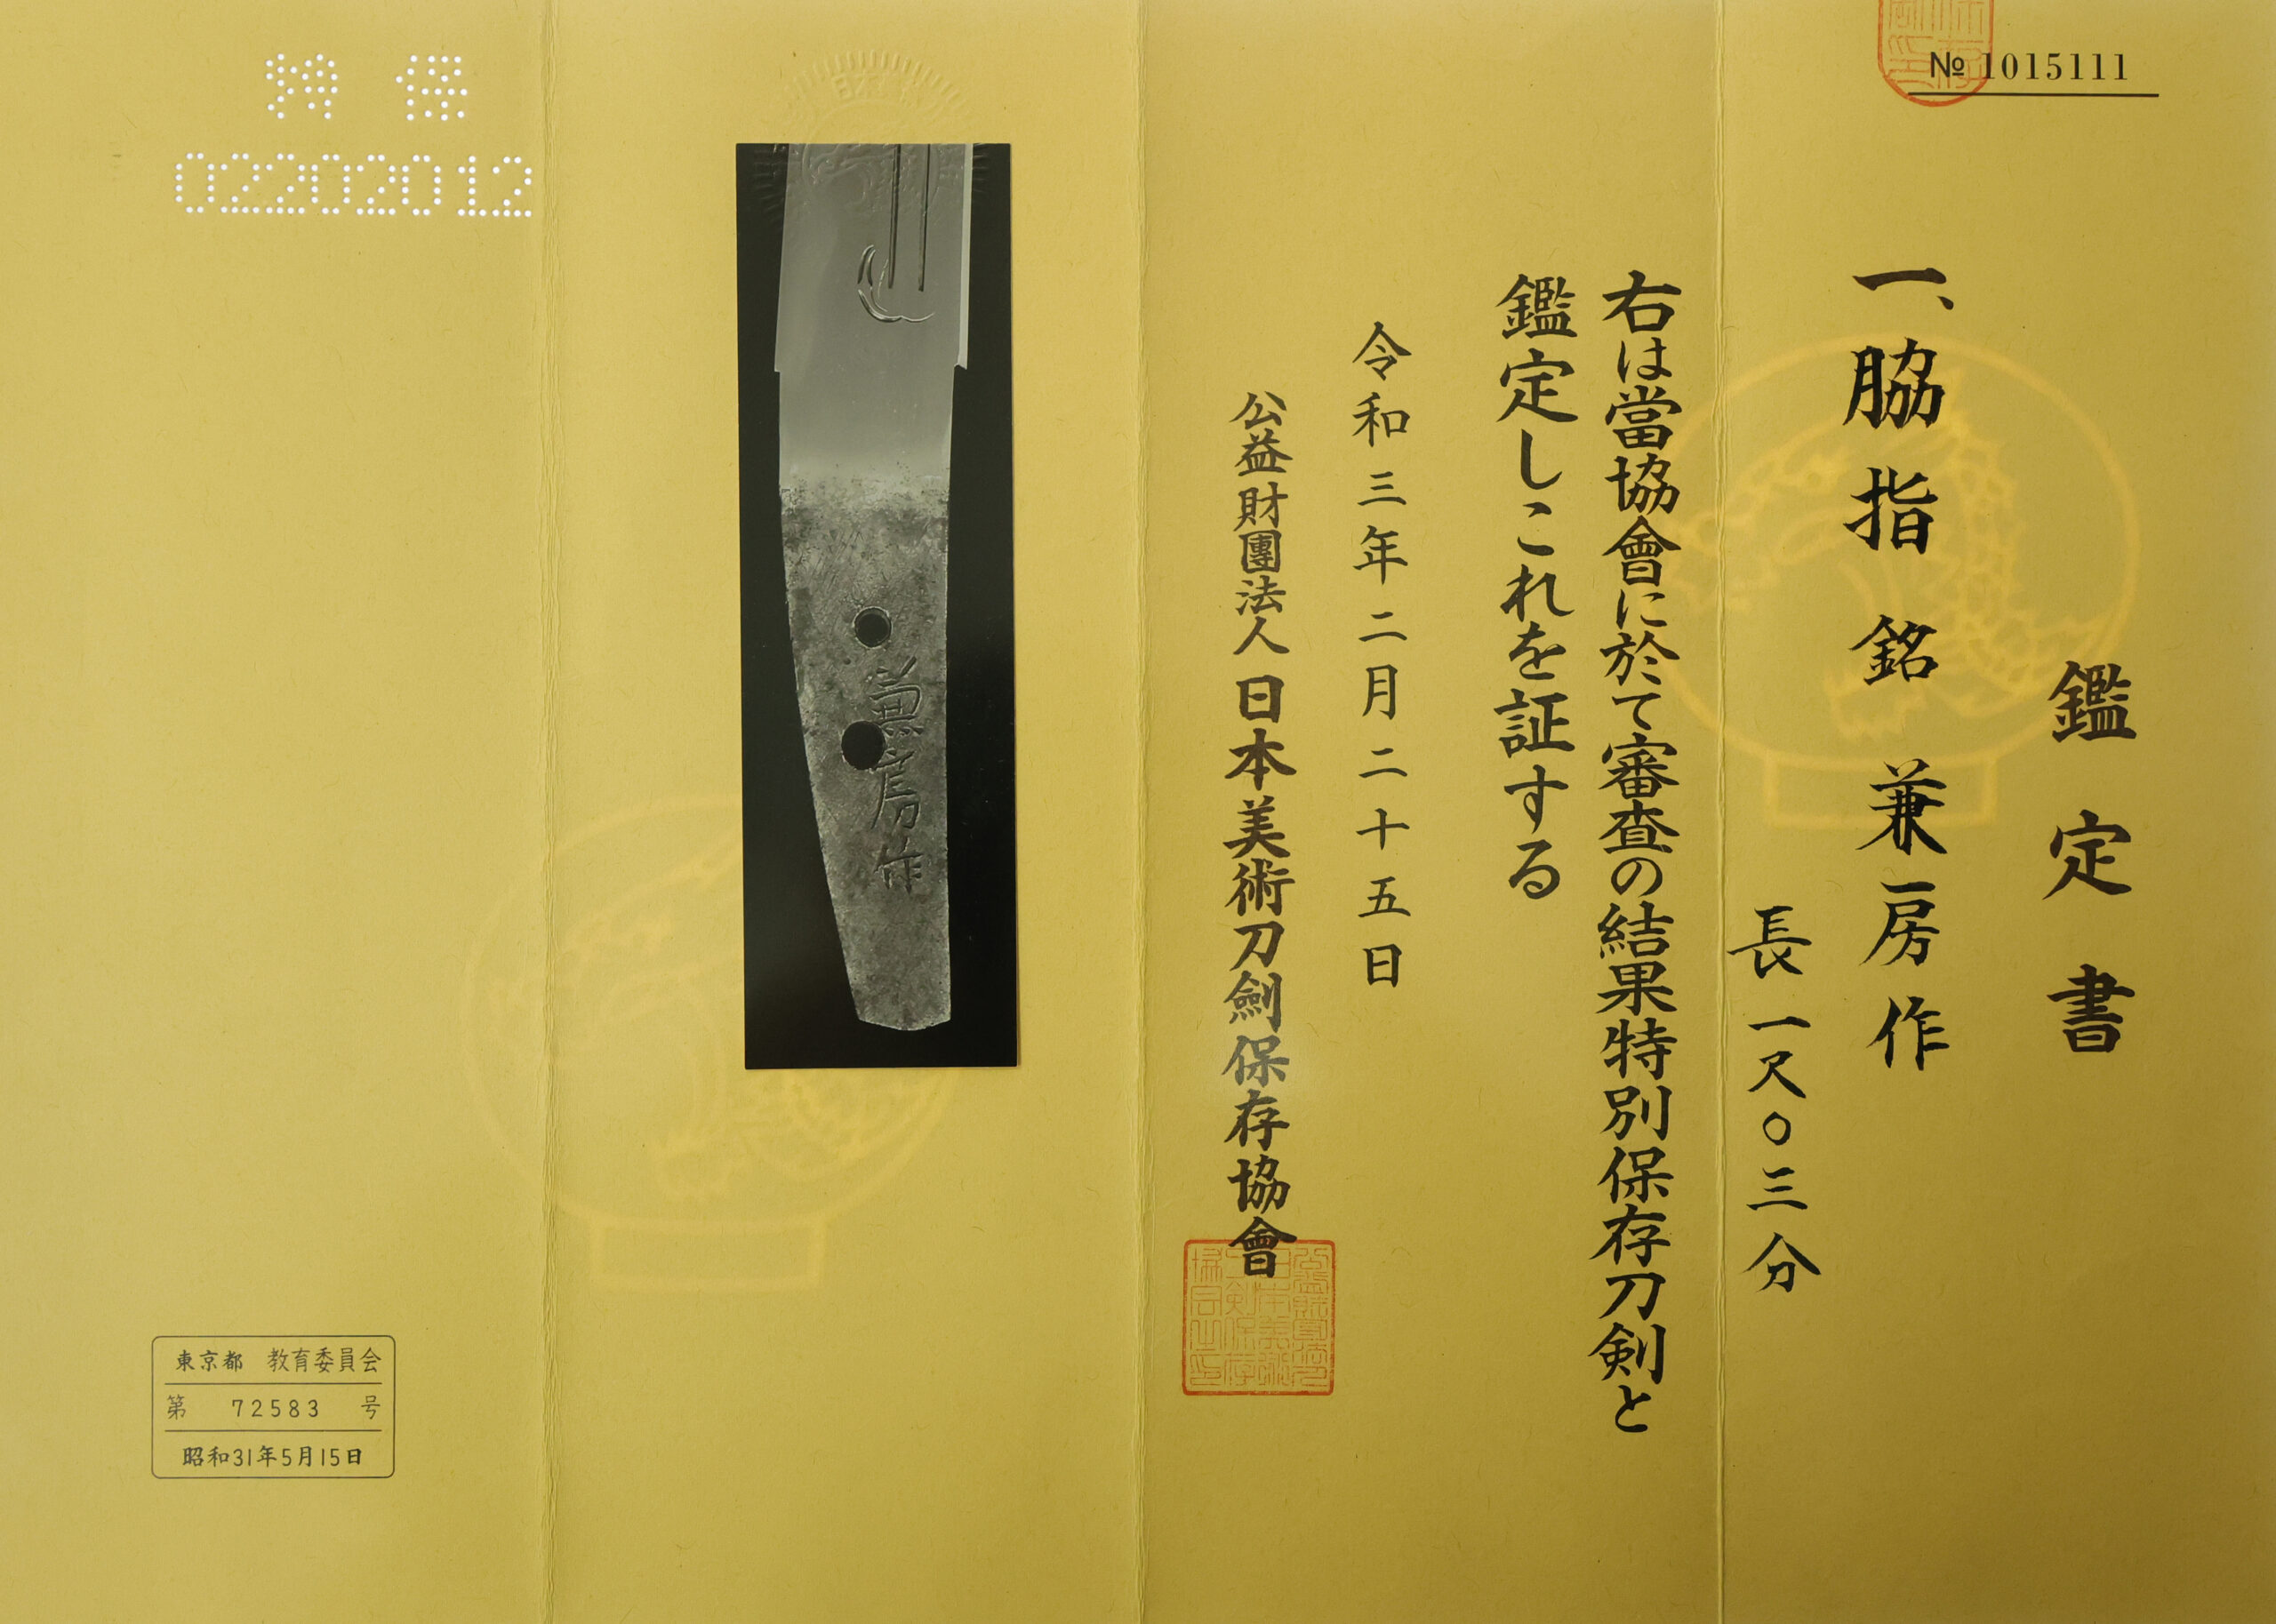 № 1015111
鑑定書
一、脇指 銘 兼房作
長一尺〇三分
右は當協會に於て審査の結果特別保存刀剣と
鑑定しこれを証する
令和三年二月二十五日
公益財團法人 日本美術刀劍保存協會
兼房作
特保
02202012
東京都 教育委員会
第 72583 号
昭和31年5月15日